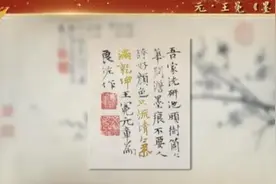 元·王冕《墨
吾家洗研池頭樹箇箇
華開澹墨痕不要人
誇好顏色只流清氣
滿乾坤王冕元章為
良佐作